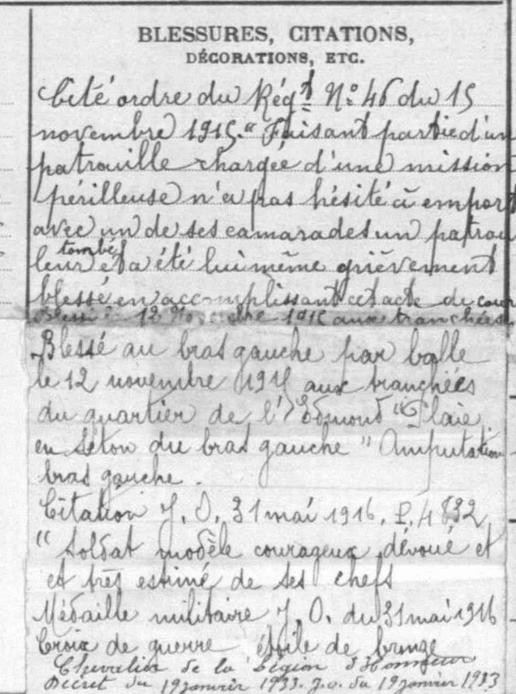 BLESSURES, CITATIONS,
DÉCORATIONS, ETC.
Cité ordre du Régt No 46 du 15
novembre 1915. "Faisant partie d'un
patrouille chargée d'une mission
périlleuse n'a pas hésité à emport
avec un de ses camarades un patrou
leur tombé et a été lui même grièvement
blessé en accomplissant cet acte de cour
Blessé le 12 Novembre 1915 aux tranchées
Blessé au bras gauche par balle
le 12 novembre 1915 aux tranchées
du quartier de l' Edmond "Plaie
en séton du bras gauche" Amputation
bras gauche.
Citation J. O., 31 mai 1916. P. 4832
"Soldat modèle courageux dévoué et
et très estimé de ses chefs
Médaille militaire J. O. du 31 mai 1916
Croix de guerre étoile de bronze
Chevalier de la Légion d'Honneur
Décret du 19 janvier 1933. J.O. du 19 janvier 1933